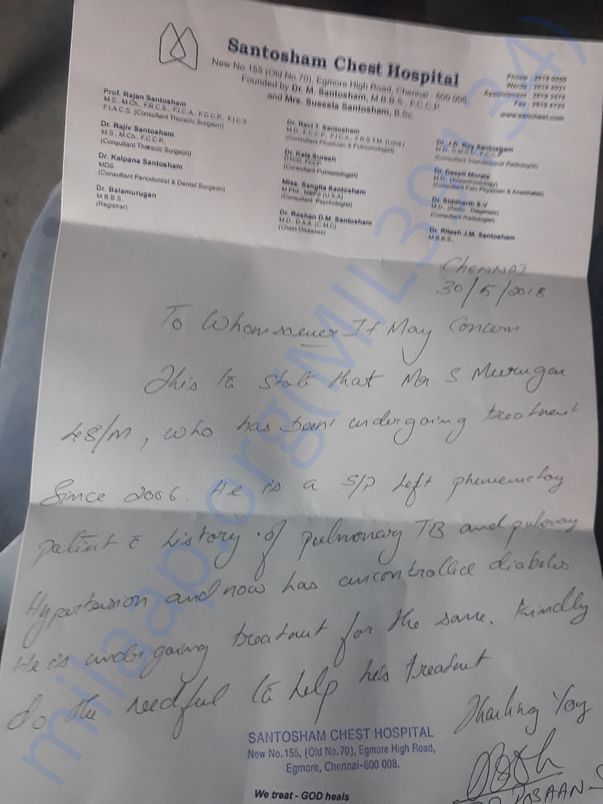 Santosham Chest Hospital
New No.155 (Old No.70), Egmore High Road, Chennai - 600 008.
Founded by Dr. M. Santosham, M.B.B.S., F.C.C.P.
and Mrs. Suseela Santosham, B.Sc.
Phone : 2819
Fax : 2819
Prof. Rajan Santosham
M.S., M.Ch., F.R.C.S., F.I.C.A., F.C.C.P., F.I.C.S.
F.I.A.C.S. (Consultant Thoracic Surgeon)
Dr. Rajiv Santosham
M.S., M.Ch., F.C.C.P.,
(Consultant Thoracic Surgeon)
Dr. Kalpana Santosham
MDS
(Consultant Periodontal & Dental Surgeon)
Dr. Balamurugan
M.B.B.S.
(Registrar)
Dr. Ravi T. Santosham
(Consultant Physician & Pulmonologist)
Dr. Kala Suresh
(Consultant Pulmonologist)
Miss. Sangita Santosham
(Consultant Psychologist)
Dr. Roshan D.M. Santosham
M.D., D.A.A. (C.M.C)
(Chest Diseases)
Dr. J.D. Roy Santosham
Dr. Deepti
Dr. Siddharth S.V
(Consultant Radiologist)
Dr. Ritesh J.M. Santosham
M.B.B.S.
CHENNAI
30/5/2018
To Whomsoever It May Concern
This is to state that Mr. S Murugan
48/M, who has been undergoing treatment
Since 2006. He is a S/P left
patient c history of pulmonary TB and
Hypertension and now has uncontrolled diabetes
He is undergoing treatment for the same. Kindly
do the needful to help his treatment
Thanking You
SANTOSHAM CHEST HOSPITAL
New No.155, (Old No.70), Egmore High Road,
Egmore, Chennai-600 008.
We treat - GOD heals
milaap.org(MIL309134)